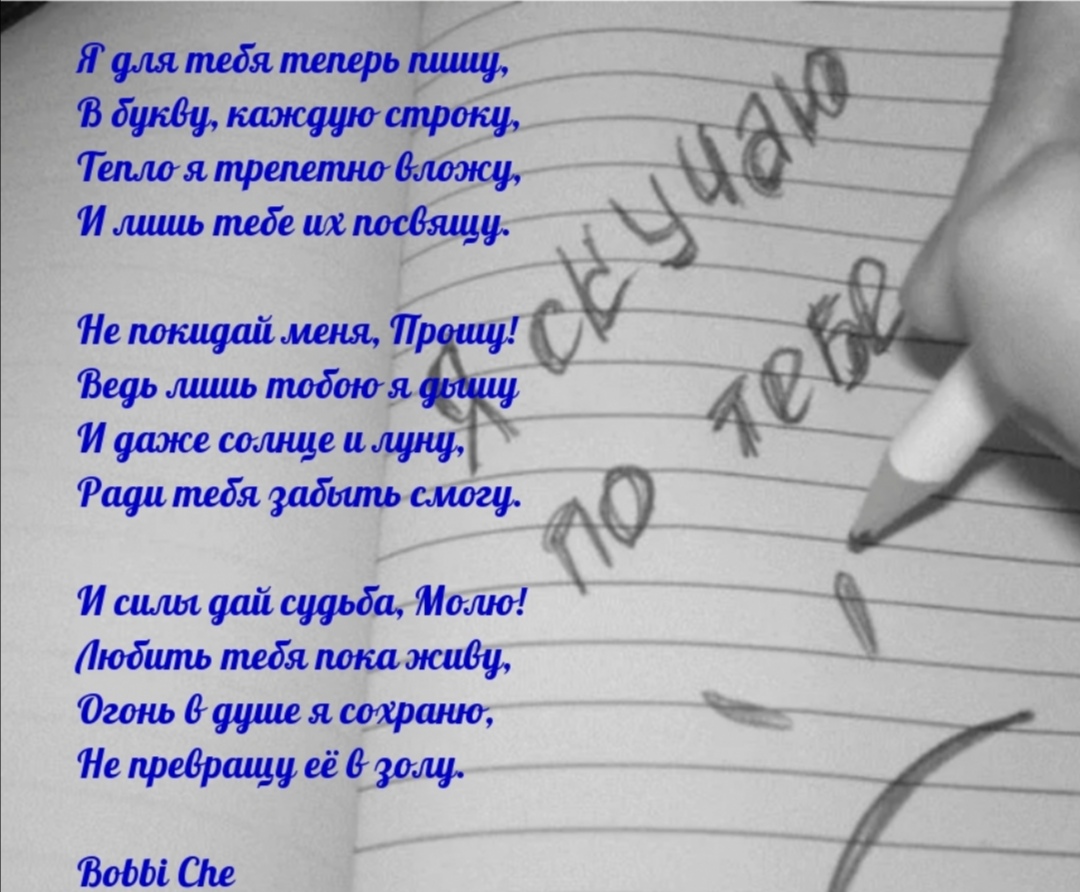 Я для тебя теперь пишу,
В букву, каждую строку,
Тепло я трепетно вложу,
И лишь тебе их посвящу.
Не покидай меня, Прошу!
Ведь лишь тобою я дышу
И даже солнце и луну,
Ради тебя забыть смогу.
И силы дай судьба, Молю!
Любить тебя пока живу,
Огонь в душе я сохраню,
Не превращу её в золу.
Bobbi Che
Я скучаю
по тебе